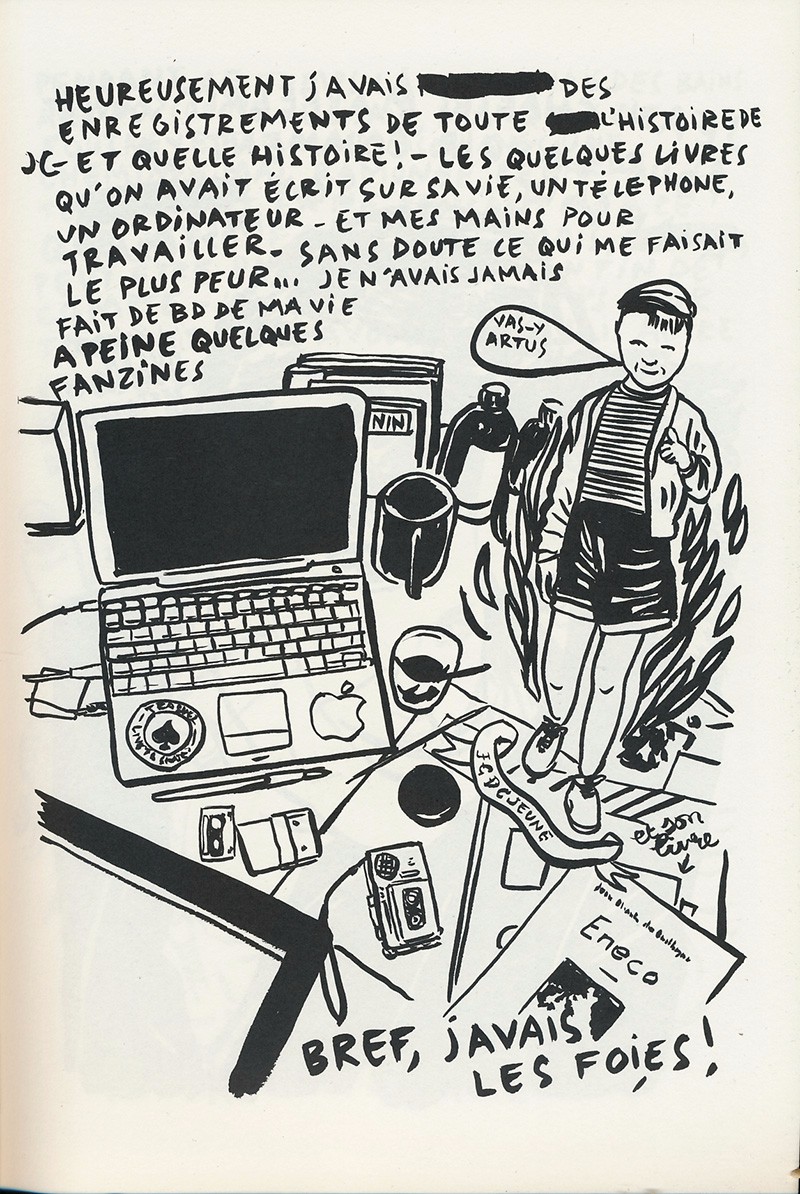 HEUREUSEMENT J'AVAIS DES
ENREGISTREMENTS DE TOUTE L'HISTOIRE DE
JC - ET QUELLE HISTOIRE! - LES QUELQUES LIVRES
QU'ON AVAIT ÉCRIT SUR SA VIE, UN TÉLEPHONE,
UN ORDINATEUR - ET MES MAINS POUR
TRAVAILLER - SANS DOUTE CE QUI ME FAISAIT
LE PLUS PEUR... JE N'AVAIS JAMAIS
FAIT DE BD DE MA VIE
A PEINE QUELQUES
FANZINES
VAS-Y
ARTUS
NIN
JGDCJEUNE
et son
livre
Eneco
BREF, J'AVAIS
LES FOIES!